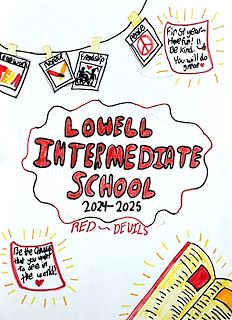 Respect
Friendship
Peace
First year...
Have fun! !!
Be kind.
You will do
great
LOWELL
INTERMEDIATE
SCHOOL
2024-2025
RED DEVILS
Be the Change
that you want
to see in
the world!